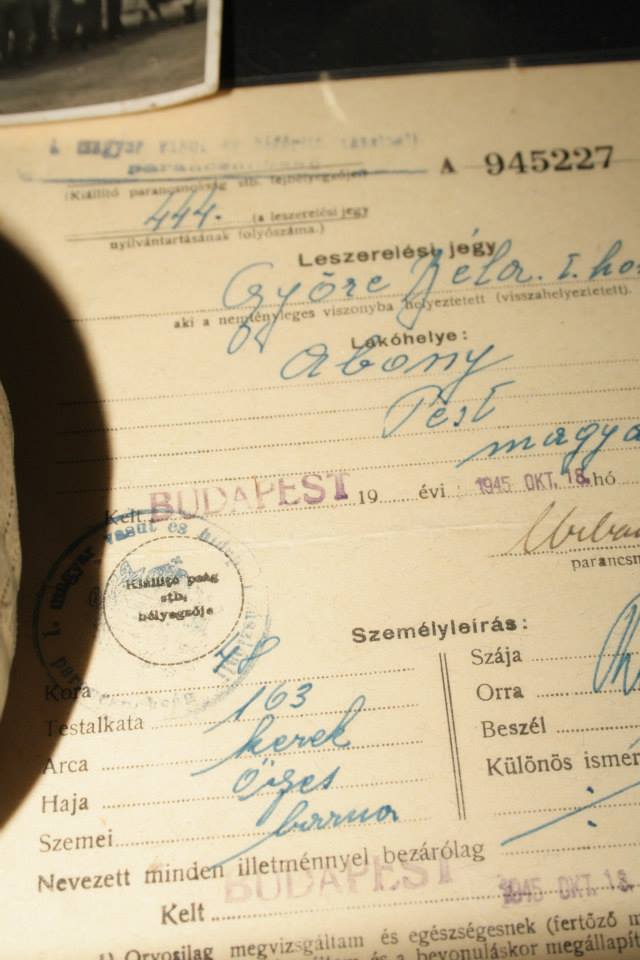 A 945227
(Kiállító parancsnokság stb. fejbélyegzője)
444. (a leszerelési jegy
nyilvántartásának folyószáma.)
Leszerelési jegy
Györe Béla. I. ho
aki a nemtényleges viszonyba helyeztetett (visszahelyeztetett).
Lakóhelye:
Abony
Pest
magya
Kelt BUDAPEST 19 évi 1945 OKT. 18. hó
parancsn
Kiállító pság
stb.
bélyegzője
Személyleírás:
Kora 48
Testalkata 163
Arca kerek
Haja őszes
Szemei barna
Szája
Orra
Beszél
Különös ismer
Nevezett minden illetménnyel bezárólag
Kelt BUDAPEST 1945 OKT. 18.
1) Orvosilag megvizsgáltam és egészségesnek (fertőző m
és a bevonuláskor megállapít